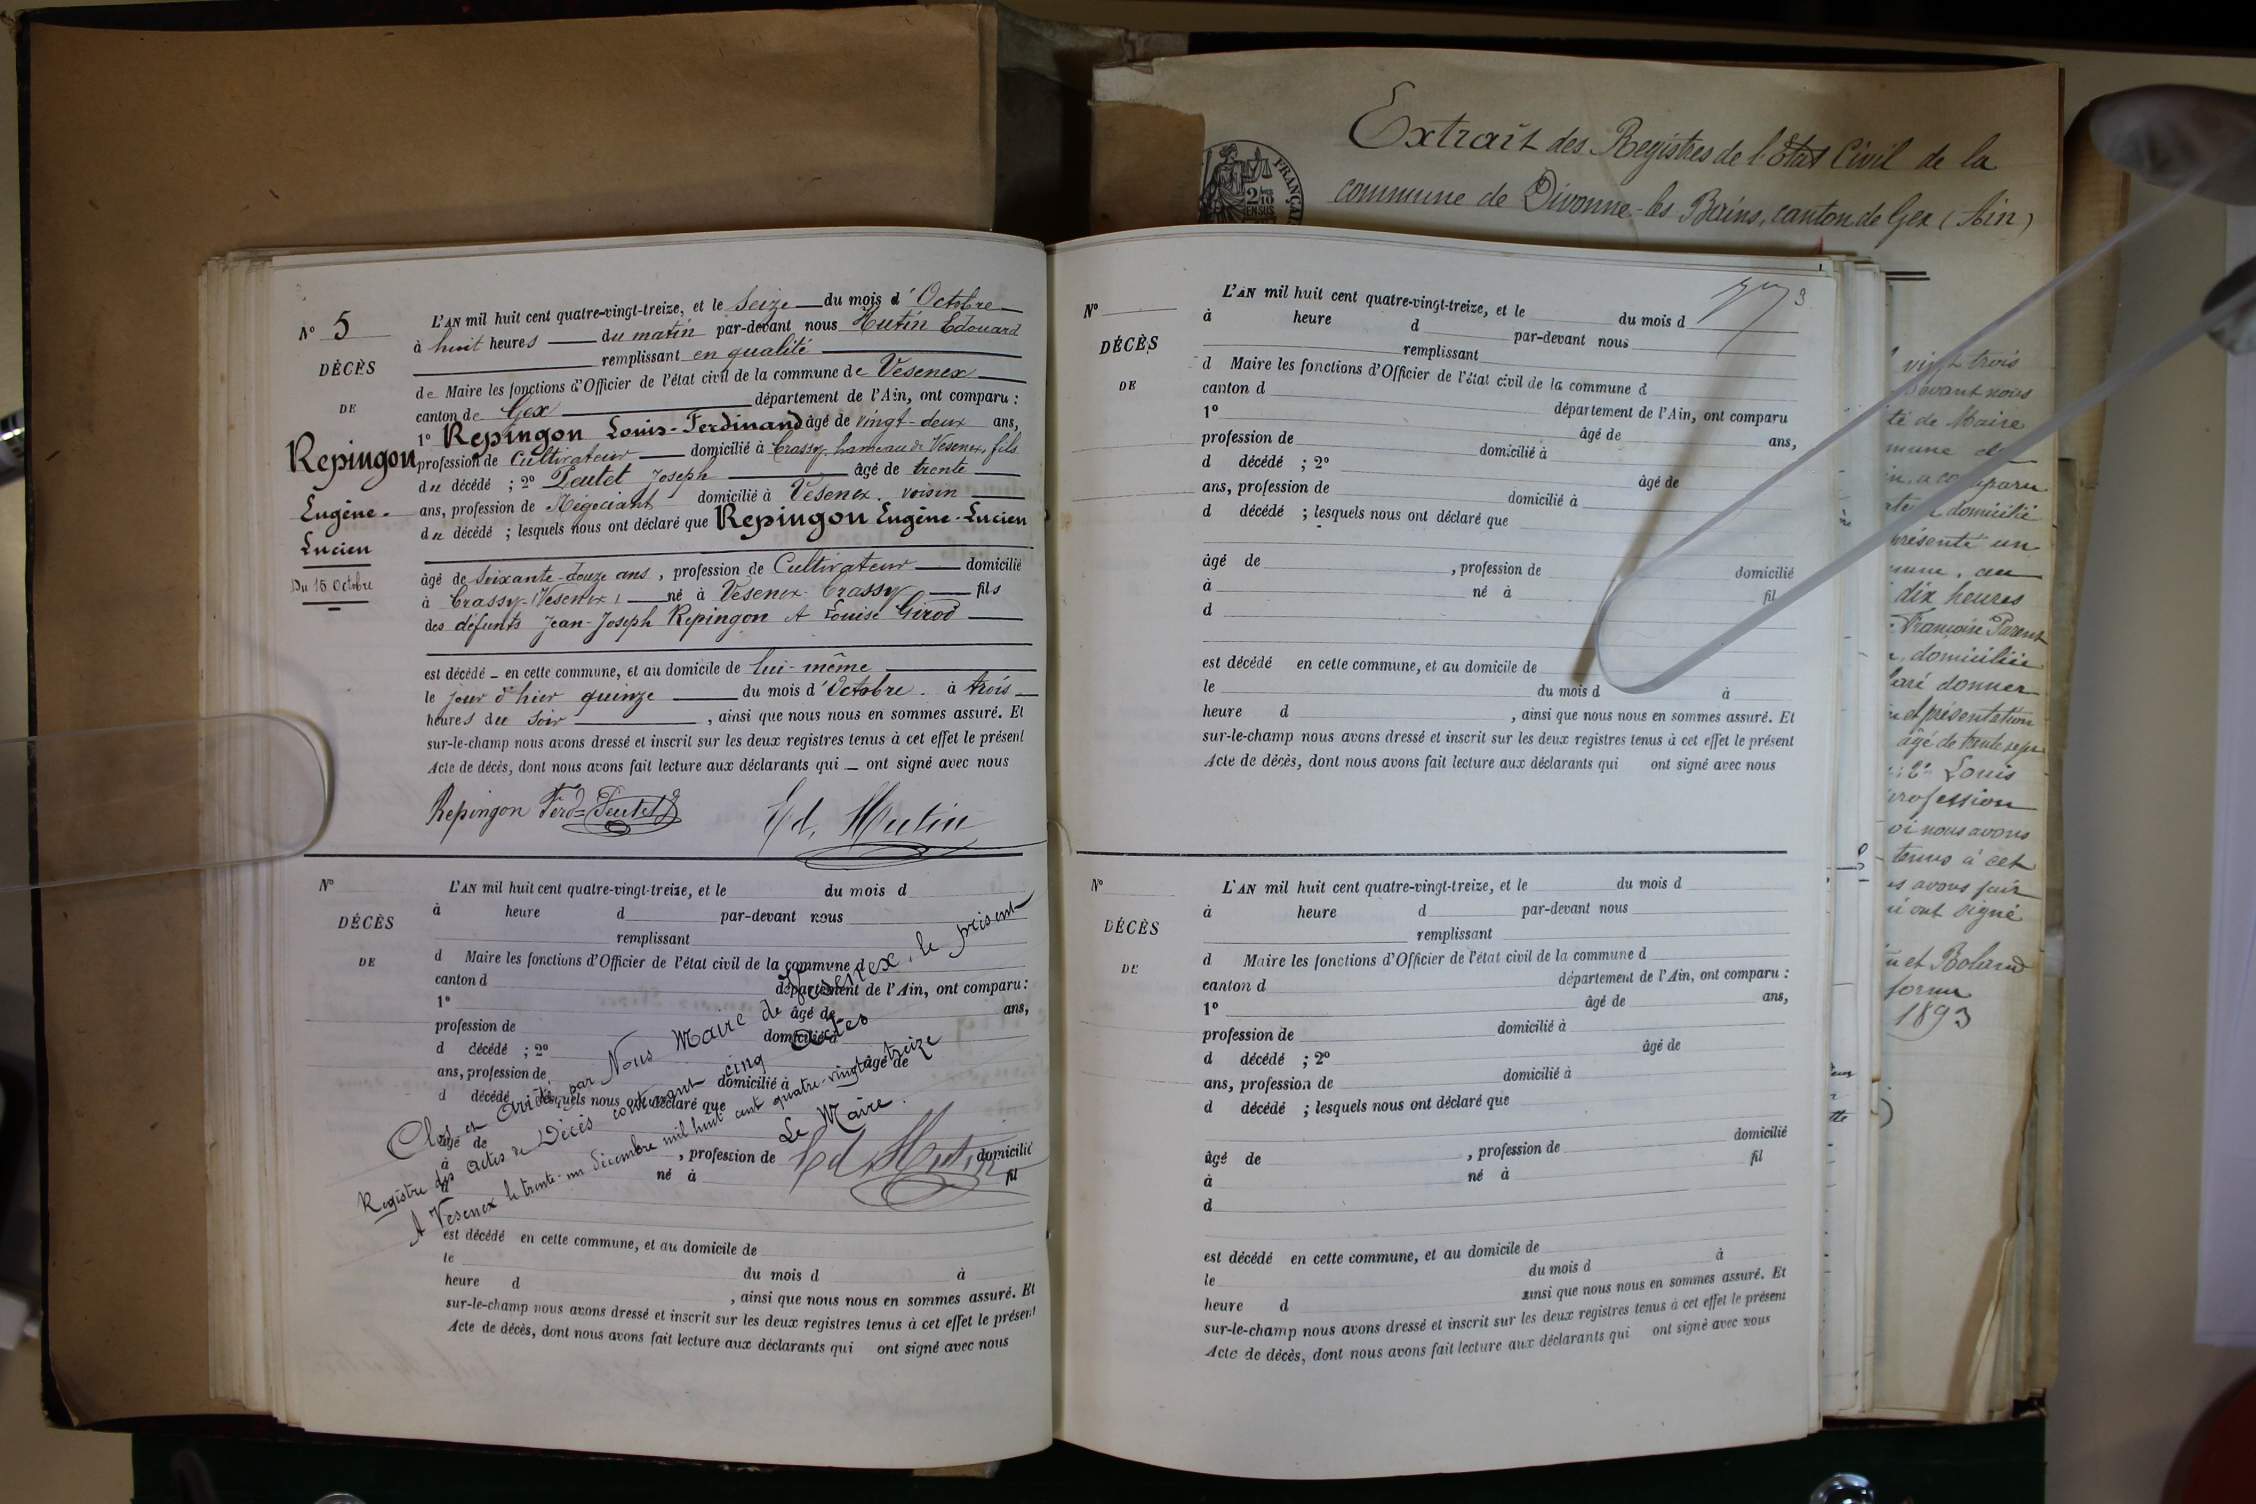 Extrait des Registres de l'état Civil de la
commune de Divonne-les Bains, canton de Gex (Ain)
FRANÇAI
N° 5
DÉCÈS
DE
Repingon
Eugène-
Lucien
Du 15 Octobre
L'AN mil huit cent quatre-vingt-treize, et le seize du mois d'Octobre
à huit heures du matin par-devant nous Hutin Edouard
remplissant en qualité
de Maire les fonctions d'Officier de l'état civil de la commune de Vesenex
canton de Gex département de l'Ain, ont comparu :
1° Repingon Louis-Ferdinand âgé de vingt-deux ans,
profession de Cultivateur domicilié à Crassy, hameau de Vesenex, fils
du décédé ; 2° Peutet Joseph âgé de trente
ans, profession de Négociant domicilié à Vesenex. voisin
du décédé ; lesquels nous ont déclaré que Repingon Eugène-Lucien
âgé de soixante-douze ans, profession de Cultivateur domicilié
à Crassy-(Vesenex) né à Vesenex-Crassy fils
des défunts Jean-Joseph Repingon et Louise Girod
est décédé en cette commune, et au domicile de lui-même
le jour d'hier quinze du mois d'Octobre. à trois
heures du soir, ainsi que nous nous en sommes assuré. Et
sur-le-champ nous avons dressé et inscrit sur les deux registres tenus à cet effet le présent
Acte de décès, dont nous avons fait lecture aux déclarants qui ont signé avec nous
Repingon Ferd Peutet J Ed, Hutin
N°
DÉCÈS
DE
L'AN mil huit cent quatre-vingt-treize, et le du mois d
à heure d par-devant nous
remplissant
d Maire les fonctions d'Officier de l'état civil de la commune d
canton d département de l'Ain, ont comparu :
1° âgé de ans,
profession de domicilié à
d décédé ; 2° âgé de
ans, profession de domicilié à
d décédé ; lesquels nous ont déclaré que
âgé de , profession de domicilié
à né à fil
d
Clos et arrêté par Nous Maire de Vesenex, le présent
Registre des actes de Décès contenant cinq actes
A Vesenex le trente-un décembre mil huit cent quatre-vingt treize
Le Maire.
Ed Hutin
est décédé en cette commune, et au domicile de
le du mois d à
heure d , ainsi que nous nous en sommes assuré. Et
sur-le-champ nous avons dressé et inscrit sur les deux registres tenus à cet effet le présent
Acte de décès, dont nous avons fait lecture aux déclarants qui ont signé avec nous
N°
DÉCÈS
DE
L'AN mil huit cent quatre-vingt-treize, et le du mois d
à heure d par-devant nous
remplissant
d Maire les fonctions d'Officier de l'état civil de la commune d
canton d département de l'Ain, ont comparu
1° âgé de ans,
profession de domicilié à
d décédé ; 2° âgé de
ans, profession de domicilié à
d décédé ; lesquels nous ont déclaré que
âgé de , profession de domicilié
à né à fil
d
est décédé en cette commune, et au domicile de
le du mois d à
heure d , ainsi que nous nous en sommes assuré. Et
sur-le-champ nous avons dressé et inscrit sur les deux registres tenus à cet effet le présent
Acte de décès, dont nous avons fait lecture aux déclarants qui ont signé avec nous
N°
DÉCÈS
DE
L'AN mil huit cent quatre-vingt-treize, et le du mois d
à heure d par-devant nous
remplissant
d Maire les fonctions d'Officier de l'état civil de la commune d
canton d département de l'Ain, ont comparu :
1° âgé de ans,
profession de domicilié à
d décédé ; 2° âgé de
ans, profession de domicilié à
d décédé ; lesquels nous ont déclaré que
âgé de , profession de domicilié
à né à fil
d
est décédé en cette commune, et au domicile de
le du mois d à
heure d ainsi que nous nous en sommes assuré. Et
sur-le-champ nous avons dressé et inscrit sur les deux registres tenus à cet effet le présent
Acte de décès, dont nous avons fait lecture aux déclarants qui ont signé avec nous
vingt trois
devant nous
té de Maire
mune de
a comparu
domicilié
présenté un
dix heures
Françoise Parent
domiciliée
laré donner
et présentation
âgé de trente sept
2° Louis
profession
oi nous avons
tenus à cet
avons fait
ont signé
et Boland
forme
1893